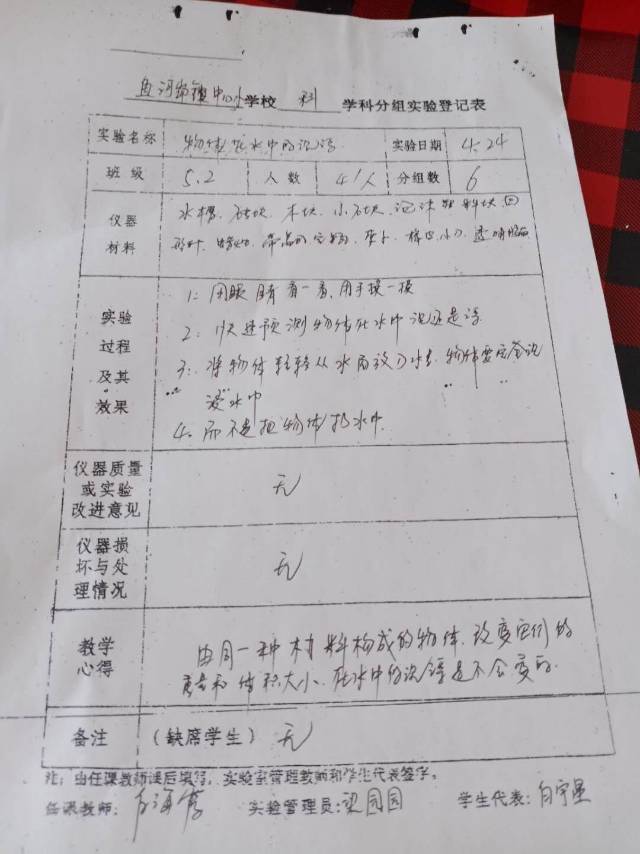 鱼河峁镇中心小学校 科 学科分组实验登记表
实验名称 物体在水中的沉浮 实验日期 4.24
班级 5.2 人数 41人 分组数 6
仪器材料 水槽、石块、木块、小石块、泡沫塑料块、回
形针、蜡烛、带盖的 萝卜、橡皮、小刀、透明
实验过程及其效果
1: 用眼睛看一看、用手摸一摸
2: 预测物体在水中沉还是浮
3: 将物体轻轻从水面放入水中、物体要完全沉
浸水中
4. 而不是把物体扔水中.
仪器质量或实验改进意见 无
仪器损坏与处理情况 无
教学心得 由同一种材料构成的物体、改变它们的
重量和体积大小、在水中的沉浮是不会变的.
备注 (缺席学生) 无
注：由任课教师课后填写，实验室管理教师和学生代表签字。
任课教师： 实验管理员：梁园园 学生代表：